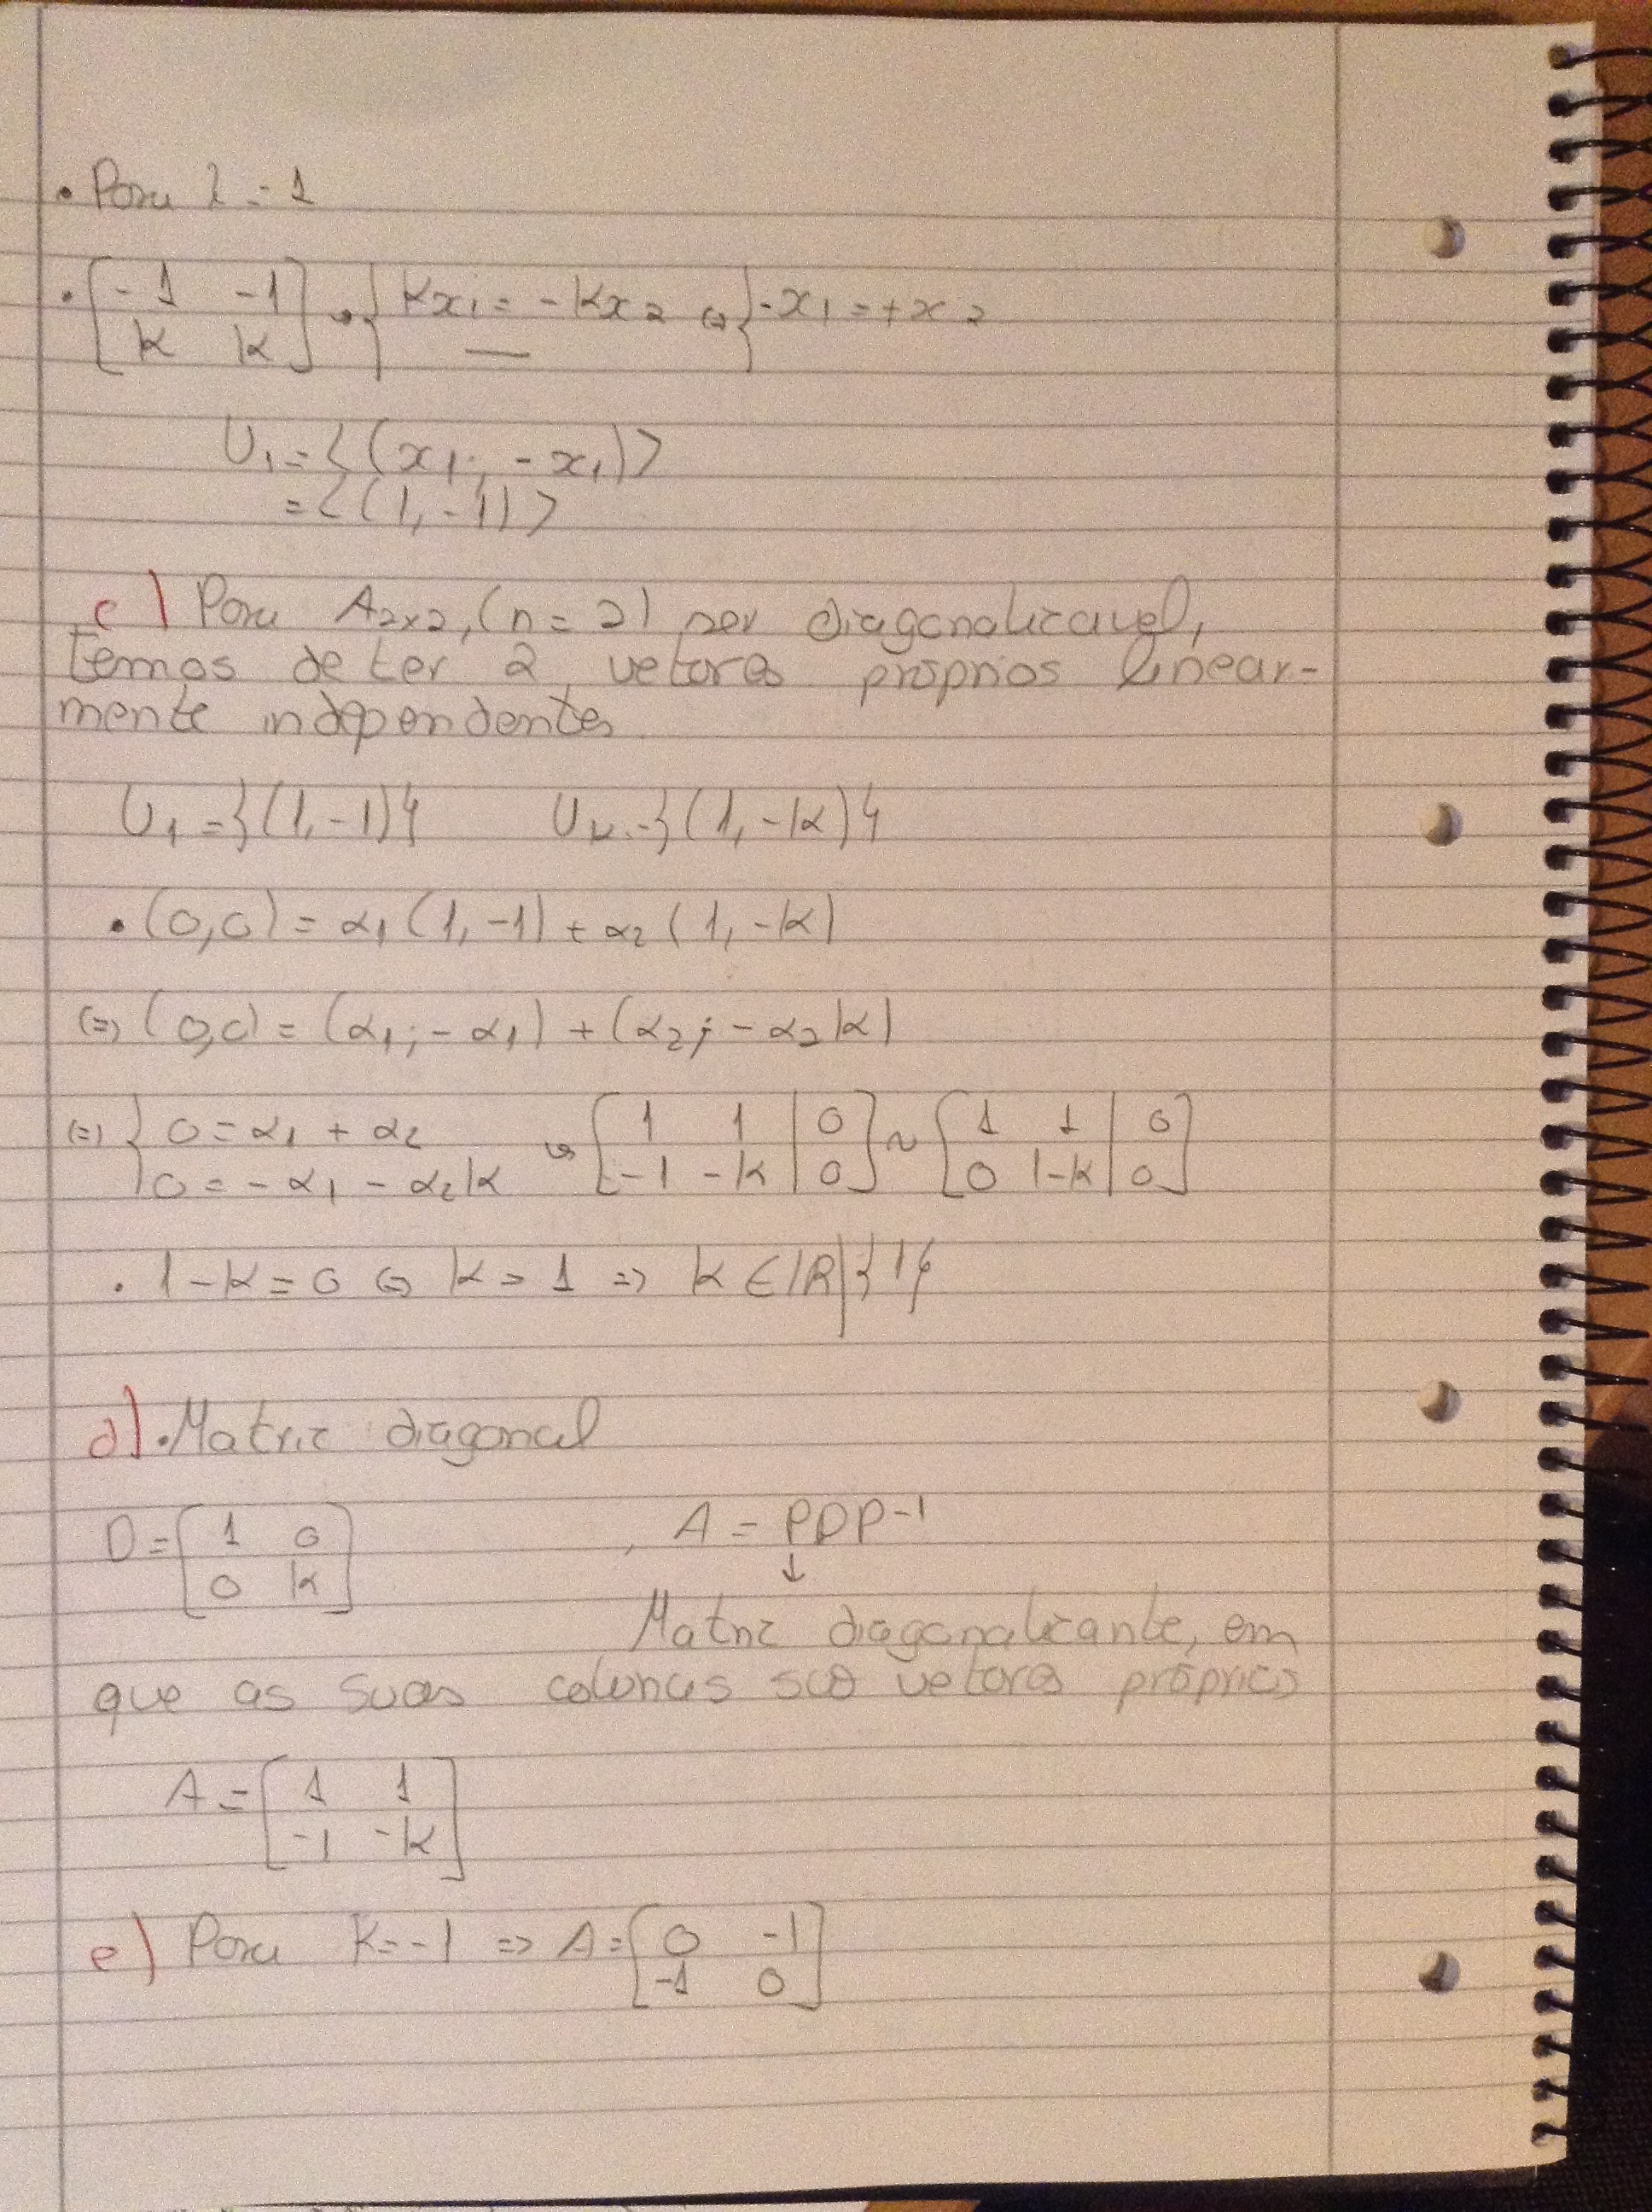 • Para λ = 1
• [ -1 -1 ; k k ] ↝ { kx₁ = -kx₂ ⇔ { -x₁ = +x₂
U₁ = <(x₁; -x₁)>
= <(1, -1)>
c) Para A₂ₓ₂, (n = 2) ser diagonalizavel,
temos de ter 2 vetores próprios linear-
mente independentes.
U₁ = {(1, -1)} Uₖ = {(1, -k)}
• (0,0) = α₁(1, -1) + α₂(1, -k)
⇔ (0,0) = (α₁; -α₁) + (α₂; -α₂k)
⇔ { 0 = α₁ + α₂ ; 0 = -α₁ - α₂k ↝ [ 1 1 | 0 ; -1 -k | 0 ] ~ [ 1 1 | 0 ; 0 1-k | 0 ]
• 1 - k = 0 ⇔ k = 1 ⇒ k ∈ ℝ\{1}
d) • Matriz diagonal
D = [ 1 0 ; 0 k ] , A = PDP⁻¹
↓
Matriz diagonalizante, em
que as suas colunas são vetores próprios
A = [ 1 1 ; -1 -k ]
e) Para k = -1 ⇒ A = [ 0 -1 ; -1 0 ]